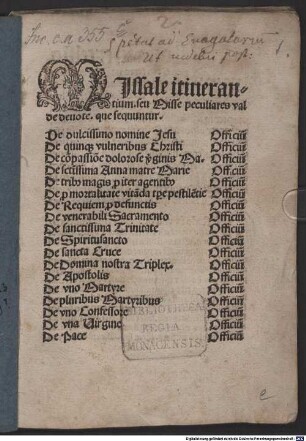 Inc. c.a. 355
Missale itineran-
tium. seu Misse peculiares val
de deuote. que sequuntur.
De dulcissimo nomine Jesu Officiū
De quinqȝ vulneribus Christi Officiū
De cōpassiōe dolorose ỿginis Ma. Officiū
De sctissima Anna matre Marie Officiū
De tribꝰ magis ꝓ iter agentibꝰ Officiū
De ꝓ mortalitate vitāda tꝑe pestilētie Officiū
De Requiem ꝓ defunctis Officiū
De venerabili Sacramento Officiū
De sanctissima Trinitate Officiū
De Spiritusancto Officiū
De sancta Cruce Officiū
De Domina nostra Triplex. Officiū
De Apostolis Officiū
De vno Martyre Officiū
De pluribus Martyribus Officiū
De vno Confessore Officiū
De vna Virgine Officiū
De Pace Officiū
BIBLIOTHECA
REGIA
MONACENSIS.